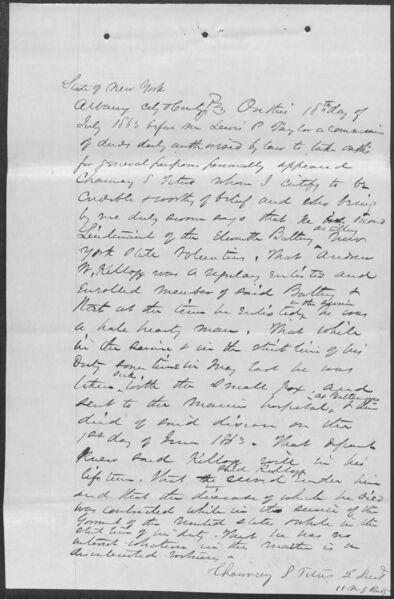 State of New York
Albany City & County SS On this 18th day of
July 1863 before me Lewis P. a commissioner
of deeds duly authorised by law to take oaths
for general purposes personally appeared
Chauncey S Titus whom I certify to be
credible & worthy of belief and who being
by me duly sworn says that he is second
Lieutenant of the Eleventh Battery artillery New
York State Volunteers. That Andrew
W. Kellogg was a regularly enlisted and
enrolled member of said Battery &
that at the time he enlisted in the service he was
a hale hearty man. That while
in the service & in the strict line of his
Duty some time in May last he was
taken sick with the Small pox and
sent to the Marine hospital at Baltimore & there
died of said disease on the
1st day of June 1863. That deponent
Knew said Kellogg well in his
life time. That said Kellogg served under him
and that the disease of which he died
was contracted while in the service of the
Governmt of the United States & while in the
strict line of his duty. That he has no
interest whatever in the matter is a
disinterested witness
Chauncey S Titus 2 Lieut
11 N.Y. Batt